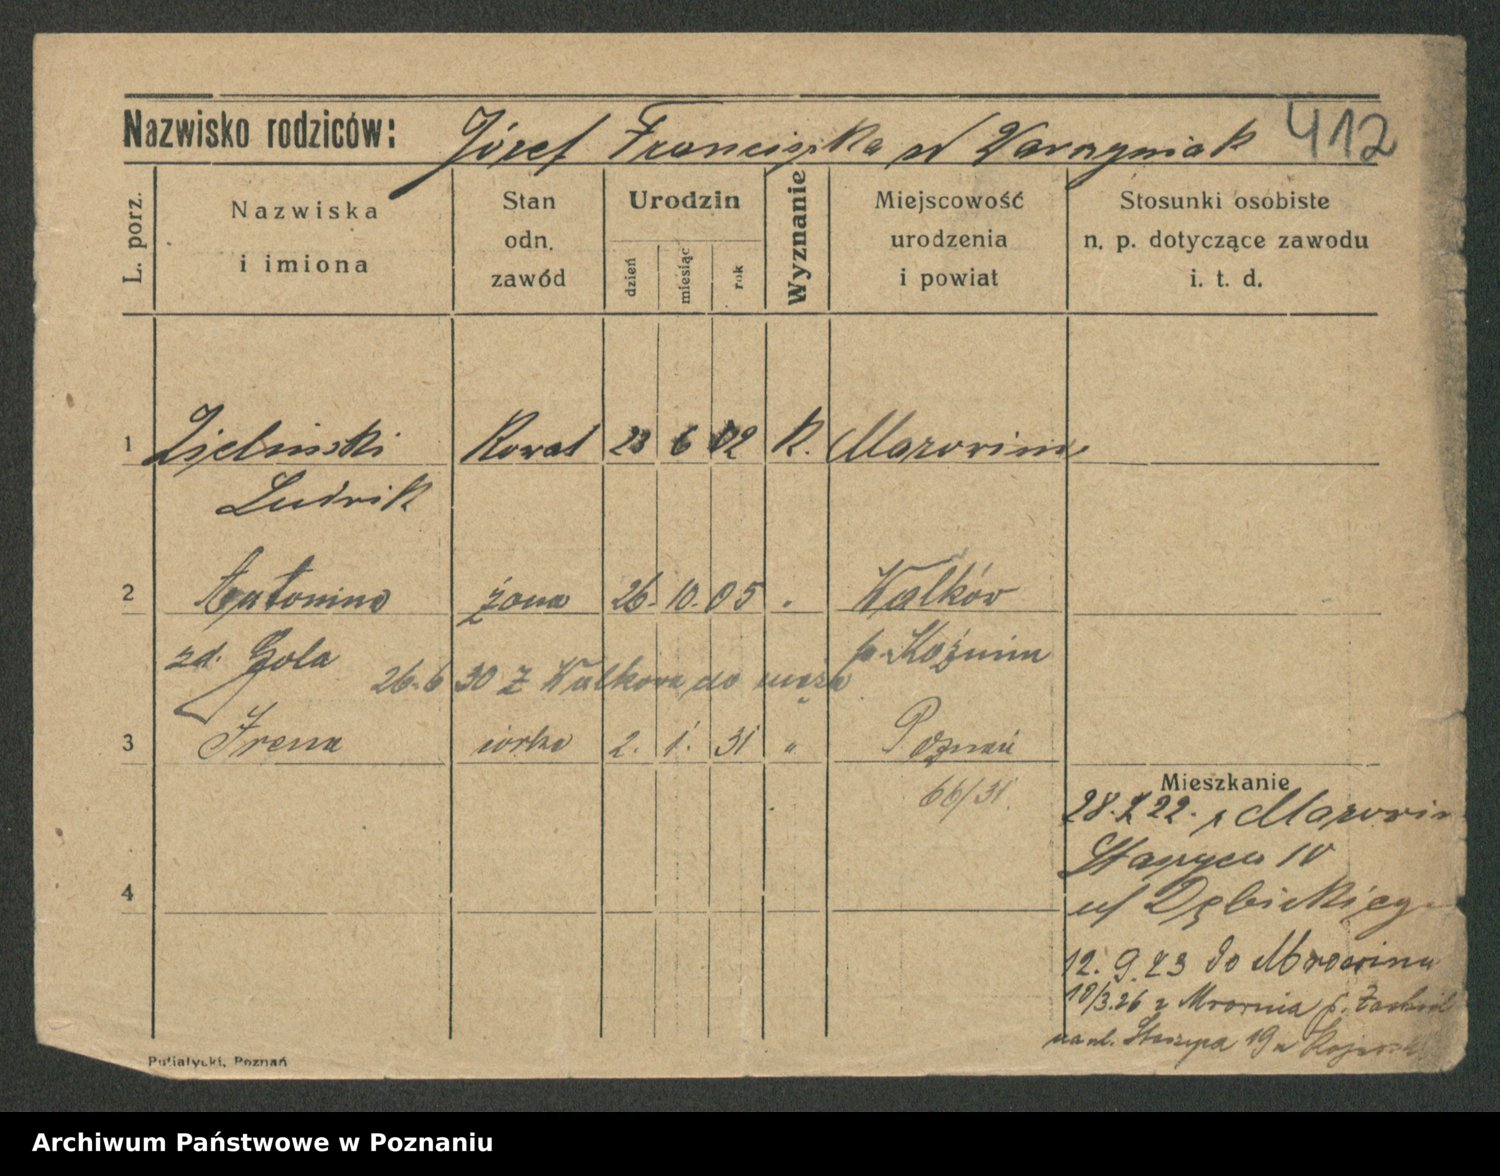 Nazwisko rodziców: Józef Franciszka Warzyniak 412
L. porz.
Nazwiska
i imiona
Stan
odn.
zawód
Urodzin
dzień
miesiąc
rok
Wyznanie
Miejscowość
urodzenia
i powiat
Stosunki osobiste
n. p. dotyczące zawodu
i. t. d.
1 Zieliński Kowal 23 6 02 k.
Ludwik
2 Antonina żona 26. 10. 05 " Walków
zd. Gola p. Koźmin
26.6 30 z Walkowa do męża
3 Irena córka 2. 1. 31 " Poznań
66/31.
Mieszkanie
28. 22.
Staszyca 10
ul Dębickieg
4
12. 9. 23 do
10/3.26 z
na ul. Staszyca 19 u
Putiatycki, Poznań
Archiwum Państwowe w Poznaniu